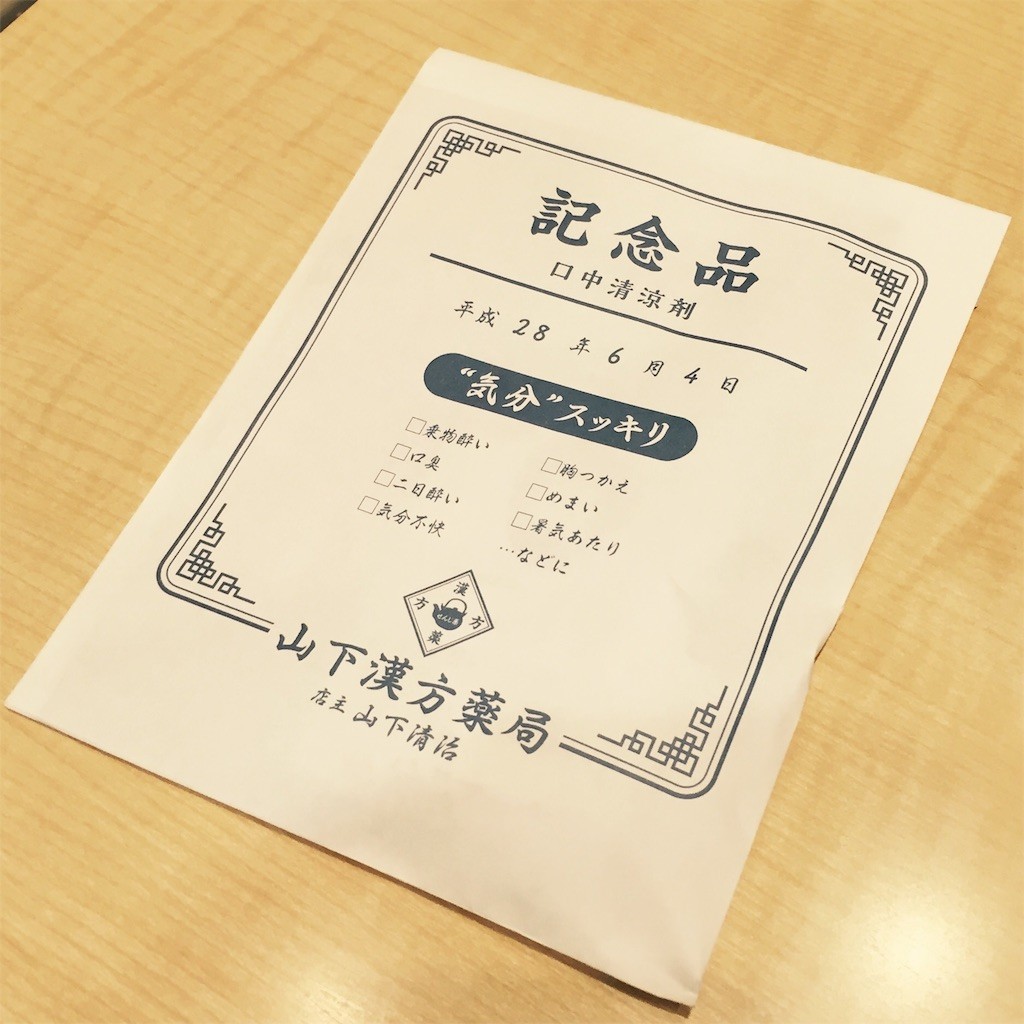 記念品
口中清涼剤
平成 28 年 6 月 4 日
“気分”スッキリ
□乗物酔い
□口臭
□二日酔い
□気分不快
□胸つかえ
□めまい
□暑気あたり
…などに
漢方薬
方
せんじ薬
山下漢方薬局
店主 山下清治